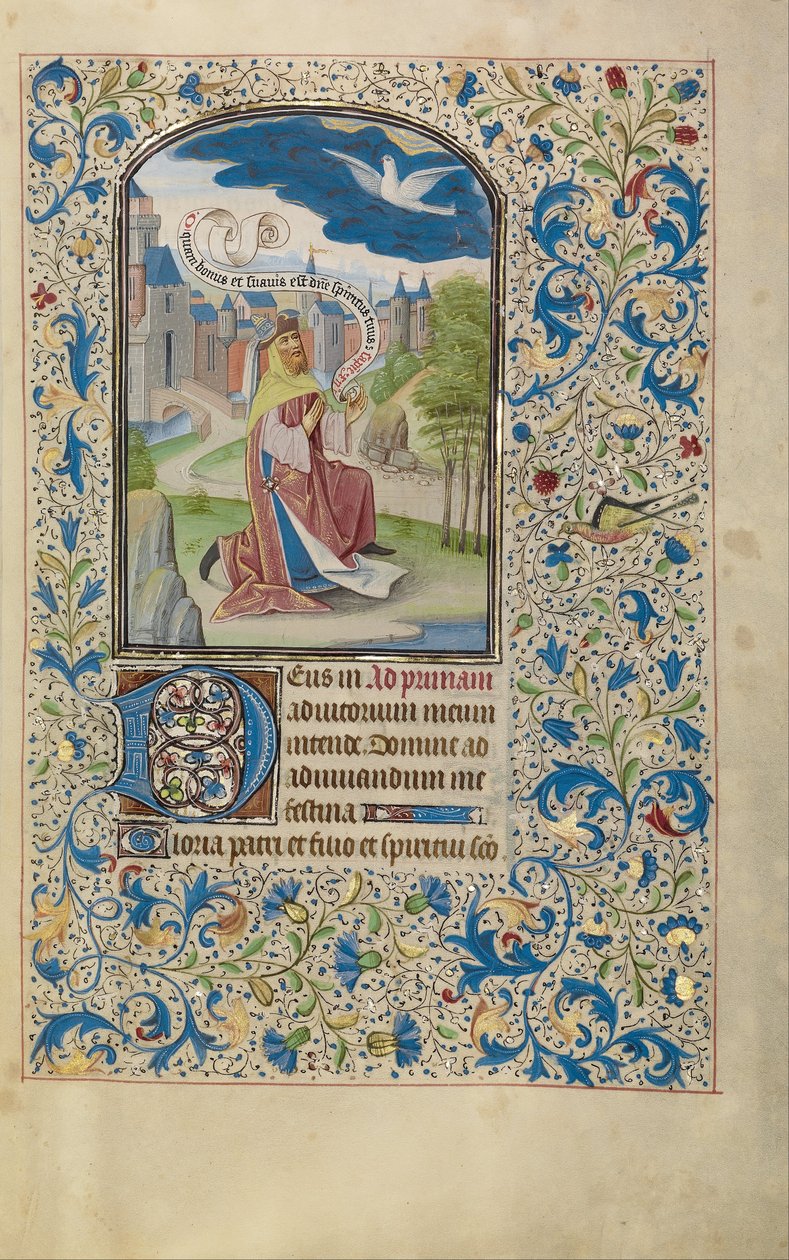 O quam bonus et suavis est dne spiritus tuus sapie. xii°
Eus in Ad primam
adiutorium meum
intende. Domine ad
adiuuandum me
festina
Gloria patri et filio et spiritui sco